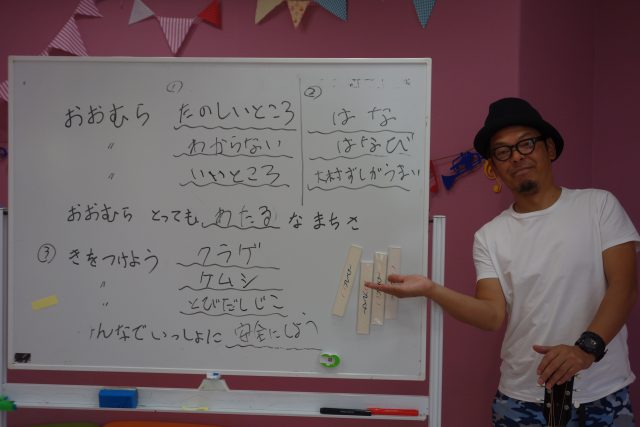 ① ②
おおむら たのしいところ はな
〃 わからない はなび
〃 いいところ 大村ずしがうまい
おおむら とっても わたる なまちさ
③ きをつけよう クラゲ
〃 ケムシ
〃 とびだしじこ
んなでいっしょに 安全にしよう